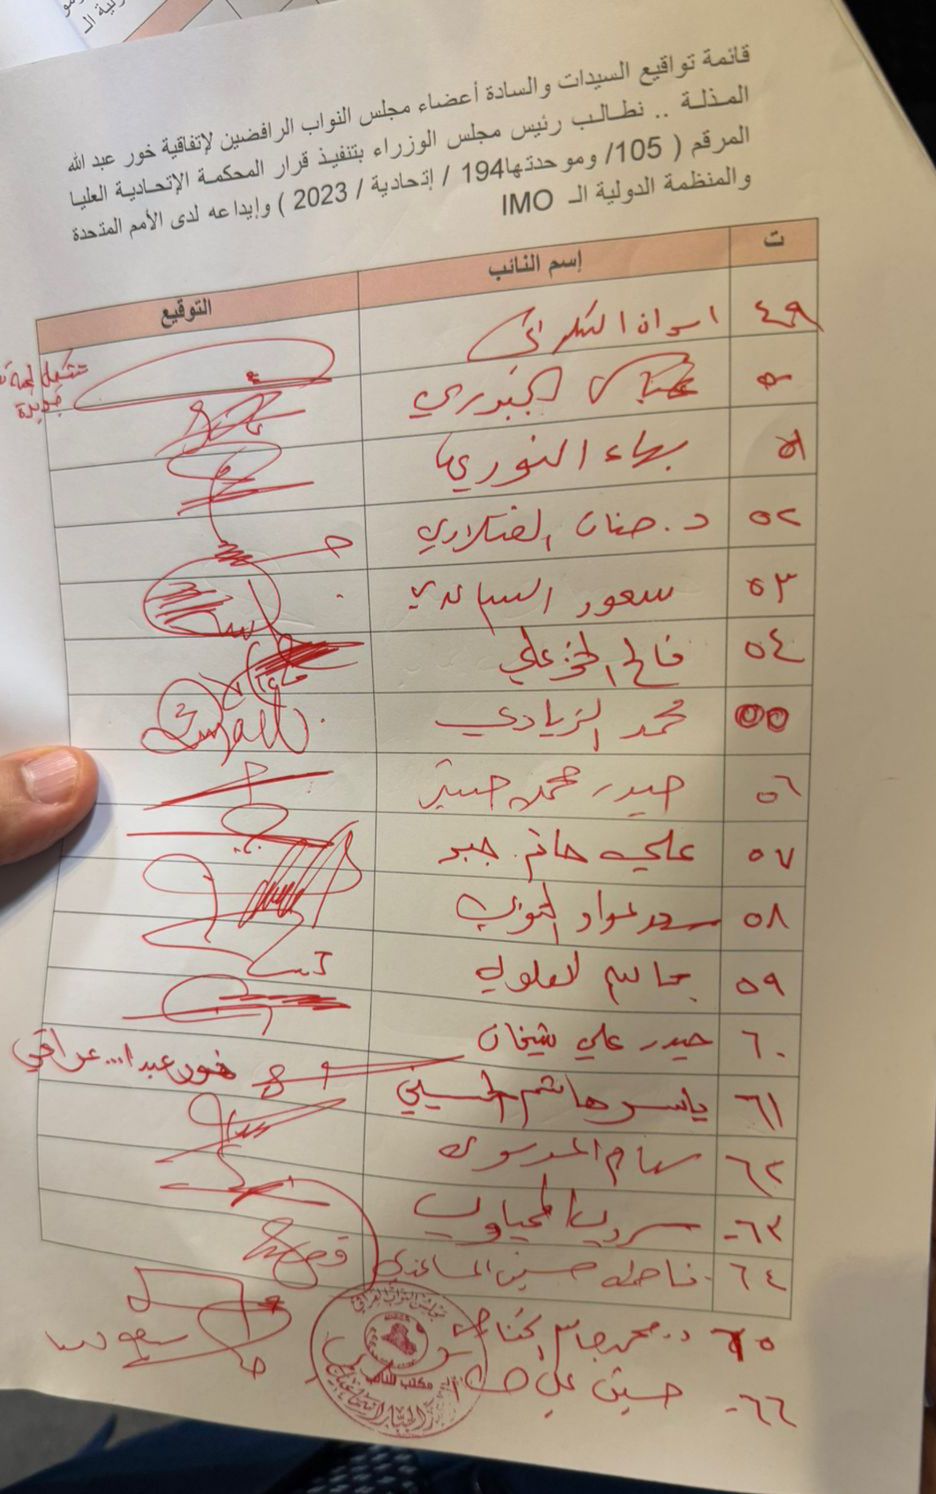 قائمة تواقيع السيدات والسادة أعضاء مجلس النواب الرافضين لإتفاقية خور عبد الله
المذلة .. نطالب رئيس مجلس الوزراء بتنفيذ قرار المحكمة الإتحادية العليا
المرقم ( 105/ وموحدتها194 / إتحادية / 2023 ) وإيداعه لدى الأمم المتحدة
والمنظمة الدولية الـ IMO
ت إسم النائب التوقيع
٤٩
تشكيل لجنة
جديدة
٥٠ الجبوري
٥١ بهاء النوري
٥٢ د. حنان الفتلاوي
٥٣ سعود الساعدي
٥٤ فالح الخزعلي
٥٥ محمد الزيادي
٥٦ حيدر محمد
٥٧ علي جبر
٥٨ سعد عواد
٥٩ جاسم العلوي
٦٠ حيدر علي شيخان
خور عبد الله عراقي
٦١ ياسر هاشم الحسيني
٦٢ سهام الموسوي
٦٣
٦٤ فاطمة حسين
٦٥ د. محمد جاسم
٦٦ حسين علي
مجلس النواب العراقي
مكتب النائب